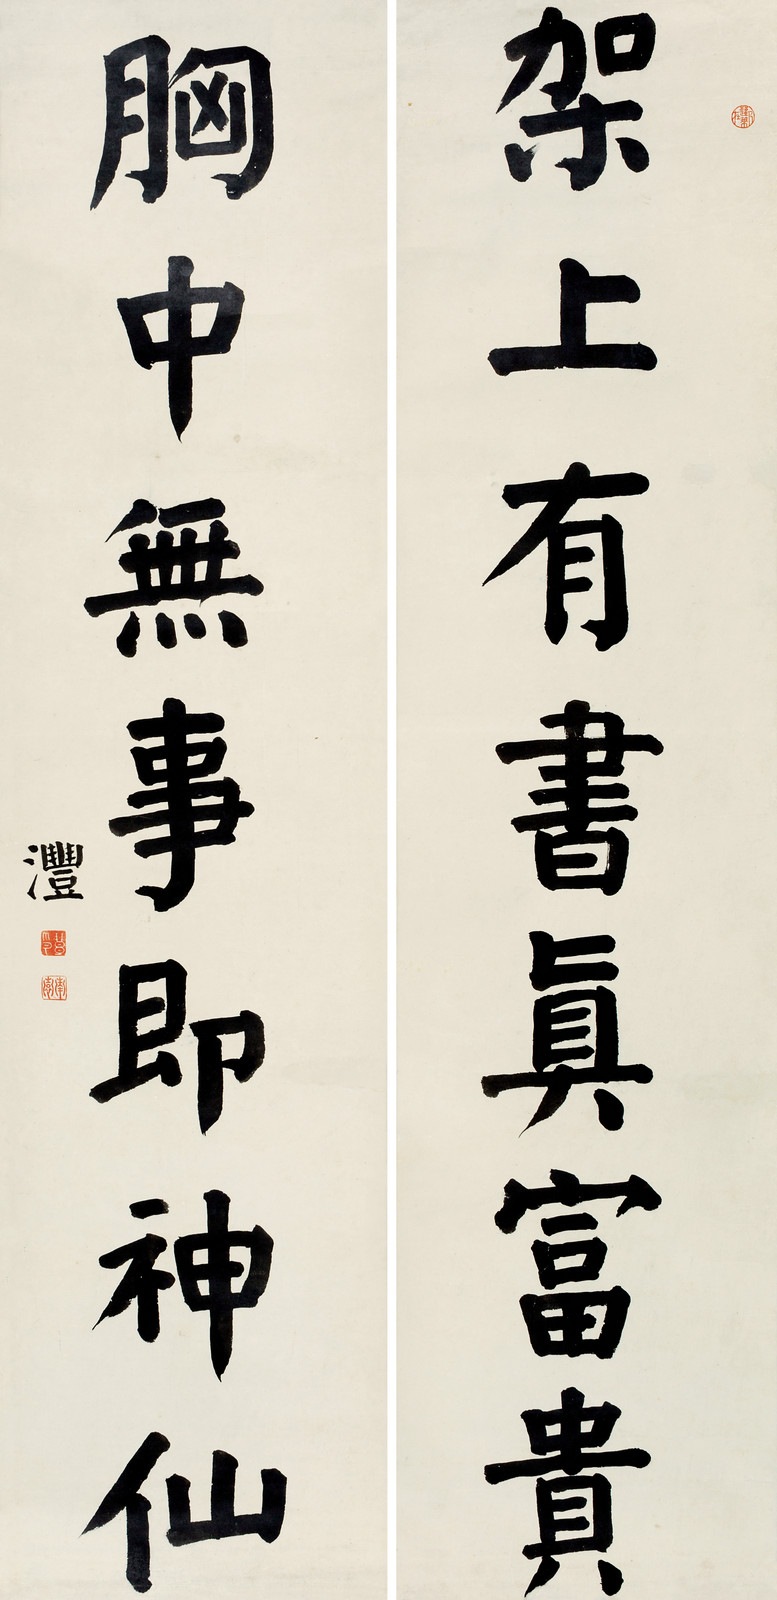 架上有書眞富貴
胸中無事即神仙
灃